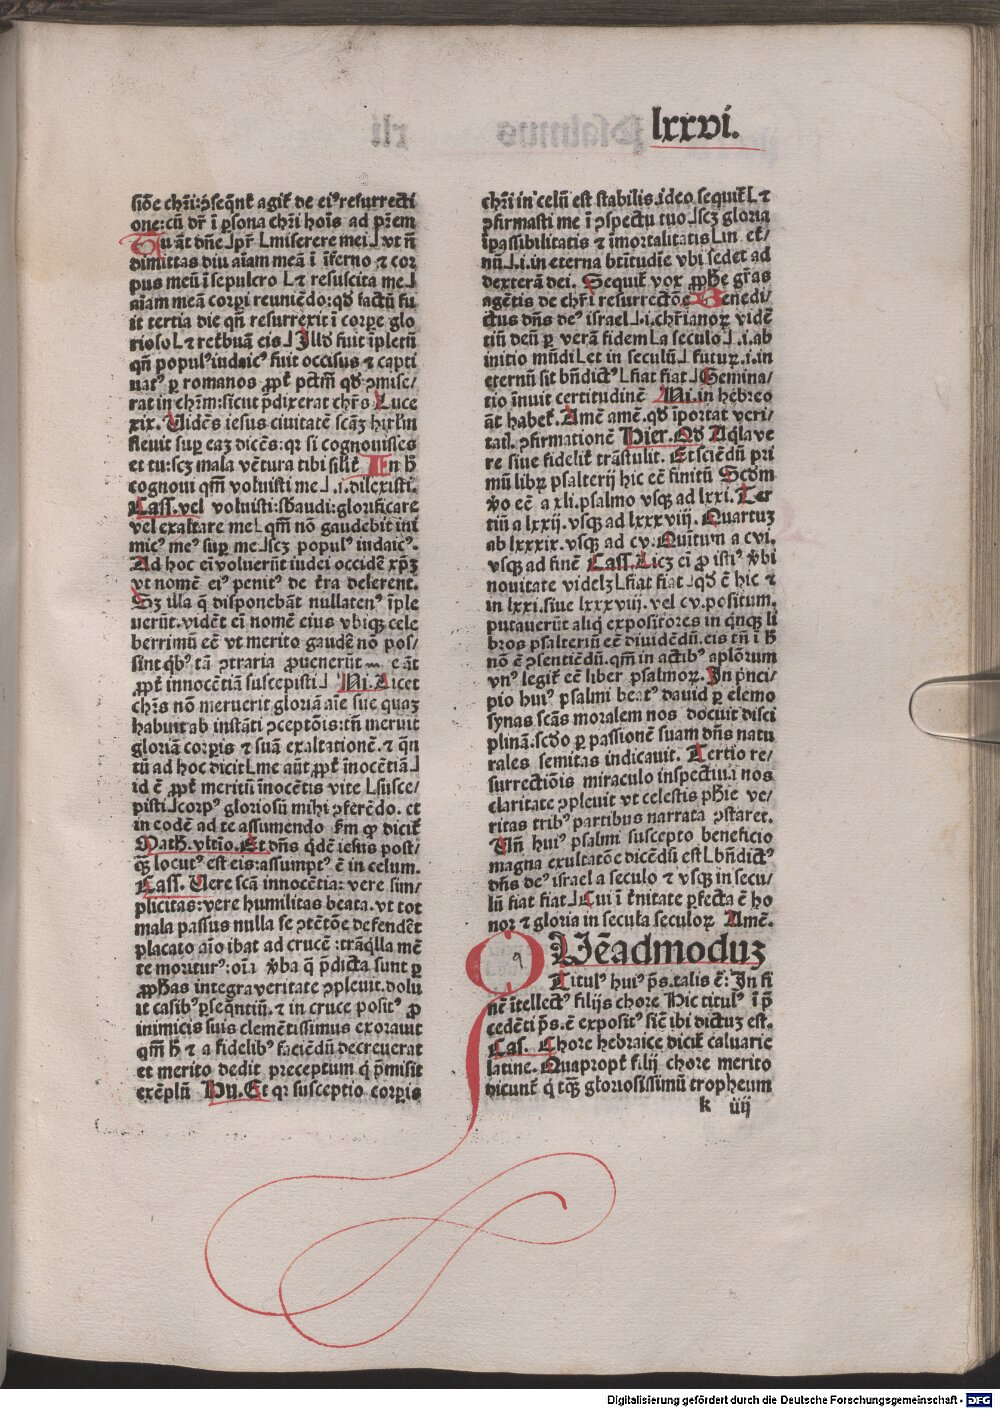 lxxvi.
siōe chr̄i: ꝯseq̄nt᷑ agit᷑ de eiꝰ resurrecti
one: cū dr̄ ī ꝑsona chr̄i hoīs ad pr̄em
Tu āt dn̄e ⅃ pr̄ L miserere mei ⅃ vt n̄
dimittas diu aīam meā ī īferno ⁊ cor
pus meū ī sepulcro L ⁊ resuscita me ⅃
aīam meā corpi reuniēdo: qđ factū fu
it tertia die qn̄ resurrexit ī corꝑe glo
rioso L ⁊ ret᷑buā eis ⅃ Illđ fuit īpletū
qn̄ populꝰ iudaicꝰ fuit occisus ⁊ capti
uatꝰ ꝑ romanos ꝓpt᷑ pctm̄ qđ ꝯmise/
rat in chr̄m: sicut p̄dixerat chr̄s Luce
xix. Vidēs iesus ciuitatē scāꝫ hirl̄m
fleuit suꝑ eaꝫ dicēs: qꝛ si cognouisses
et tu: scꝫ mala vētura tibi silit᷑ In h̄
cognoui qm̄ voluisti me ⅃ .i. dilexisti.
Cass. vel voluisti: sbaudi: glorificare
vel exaltare me L qm̄ nō gaudebit ini
micꝰ meꝰ suꝑ me ⅃ scꝫ populꝰ iudaicꝰ.
Ad hoc eī voluerūt iudei occidē xp̄ꝫ
vt nomē eiꝰ penitꝰ de t᷑ra delerent.
Sꝫ illa q̄ disponebāt nullatenꝰ īple
uerūt. vidēt eī nomē eius vbiqꝫ cele
berrimū eē vt merito gaudē nō pos/
sint qͥbꝰ tā ꝯtraria ꝓuenerūt e āt
ꝓpt᷑ innocētiā suscepisti ⅃ Ni. Licet
chr̄s nō meruerit gloriā aīe sue quaꝫ
habuit ab instāti ꝯceptōis: tn̄ meruit
gloriā corꝑis ⁊ suā exaltationē. ⁊ q̄n
tū ad hoc dicit L me aūt ꝓpt᷑ īnocētiā ⅃
id ē ꝓpt᷑ meritū īnocētis vite L susce/
pisti ⅃ corpꝰ gloriosū mihi ꝯferēdo. et
in eodē ad te assumendo fm̄ ꝙ dicit᷑
Math. vltīo. Et dn̄s qͥdē iesus post/
qꝫ locutꝰ est eis: assumptꝰ ē in celum.
Cass. Vere scā innocētia: vere sim/
plicitas: vere humilitas beata. vt tot
mala passus nulla se ꝯtētōe defendēt
placato aīo ibat ad crucē: trāqͥlla mē
te moriturꝰ: oīa v̄ba q̄ p̄dicta sunt ꝑ
ꝓphas integra veritate ꝯpleuit. dolu
it casibꝰ ꝑseq̄ntiū. ⁊ in cruce positꝰ ꝓ
inimicis suis clemētissimus exorauit
qm̄ h̄ ⁊ a fidelibꝰ faciēdū decreuerat
et merito dedit preceptum q̄ p̄misit
exēplū Hu. Et qꝛ susceptio corꝑis
chr̄i in celū est stabilis. ideo sequit᷑ L ⁊
ꝯfirmasti me ī ꝯspectu tuo ⅃ scꝫ gloria
īpassibilitatis ⁊ īmortalitatis L in et᷑/
nū ⅃ .i. in eterna btītudīe vbi sedet ad
dexterā dei. Sequit᷑ vox ꝓphe gr̄as
agētis de chr̄i resurrectōe Benedi/
ctus dn̄s deꝰ israel ⅃ .i. chr̄ianoꝝ vidē
tiū deū ꝑ verā fidem L a seculo ⅃ .i. ab
initio mūdi L et in seculū ⅃ futuꝝ .i. in
eternū sit bn̄dictꝰ L fiat fiat ⅃ Gemina/
tio īnuit certitudinē Ni. in hebreo
āt habet᷑. Amē amē. qđ īportat veri/
tatis. ꝯfirmationē Hier. Qđ Aq̄la ve
re siue fidelit᷑ trāstulit. Et sciēdū pri
mū libꝝ psalterij hic eē finitū Scđm
v̄o eē a xli. psalmo vsqꝫ ad lxxi. Ter
tiū a lxxij. vsqꝫ ad lxxxviij. Quartuꝫ
ab lxxxix. vsqꝫ ad cv. Quītum a cvi.
vsqꝫ ad finē Cass. Licꝫ eī ꝓ istiꝰ v̄bi
nouitate videlꝫ L fiat fiat ⅃ qđ ē hic ⁊
in lxxi. siue lxxxviij. vel cv. positum.
putauerūt aliqͥ expositores in qͥnqꝫ li
bros psalteriū eē diuidēdū. eis tn̄ ī h̄
nō ē ꝯsentiēdū. qm̄ in actibꝰ aplōrum
vnꝰ legit᷑ eē liber psalmoꝝ. In p̄nci/
pio huiꝰ psalmi beatꝰ dauid ꝑ elemo
synas scās moralem nos docuit disci
plinā. scđo ꝑ passionē suam dn̄s natu
rales semitas indicauit. Tertio re/
surrectiōis miraculo inspectiuā nos
claritate ꝯpleuit vt celestis phīe ve/
ritas tribꝰ partibus narrata ꝯstaret.
Vn̄ huiꝰ psalmi suscepto beneficio
magna exultatōe dicēdū est L bn̄dictꝰ
dn̄s deꝰ israel a seculo ⁊ vsqꝫ in secu/
lū fiat fiat ⅃ Cui ī t᷑nitate ꝑfecta ē ho
noꝛ ⁊ gloria in secula seculoꝝ Amē.
QVēadmoduꝫ
Titulꝰ huiꝰ p̄s. talis ē: In fi
nē ītellectꝰ filijs chore Hic titulꝰ ī p̄
cedēti p̄s. ē expositꝰ sic̄ ibi dictuꝫ est.
Cas. Chore hebraice dicit᷑ caluarie
latine. Quapropt᷑ filij chore merito
dicunt᷑ qͥ tāqꝫ gloriosissimū tropheum
k iiij
Digitalisierung gefördert durch die Deutsche Forschungsgemeinschaft - DFG